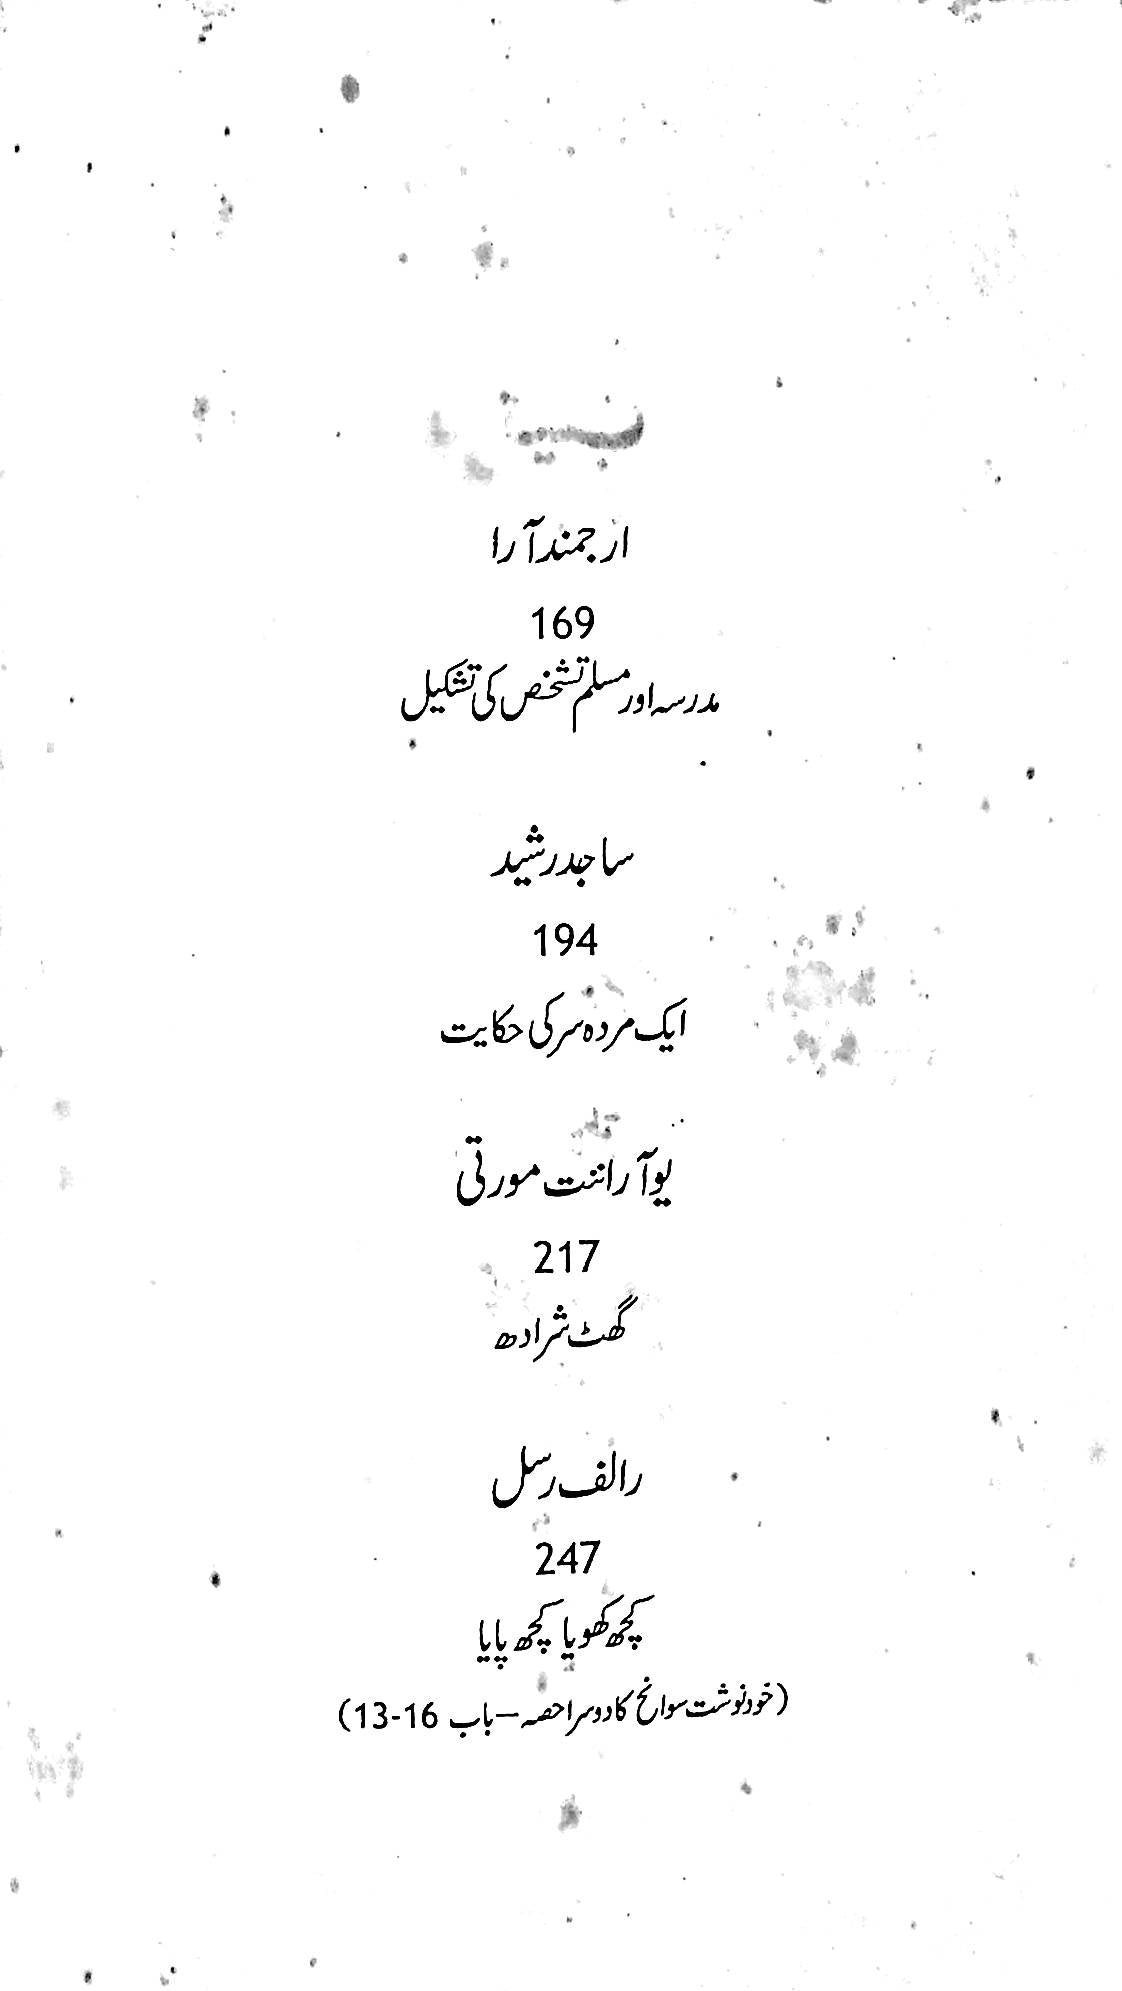 ارجمند آرا
169
مدرسہ اور مسلم تشخص کی تشکیل
ساجد رشید
194
ایک مردہ سر کی حکایت
یو آر اننت مورتی
217
گھٹ شرادھ
رالف رسل
247
کچھ کھویا کچھ پایا
(خودنوشت سوانح کا دوسرا حصہ – باب 16-13)